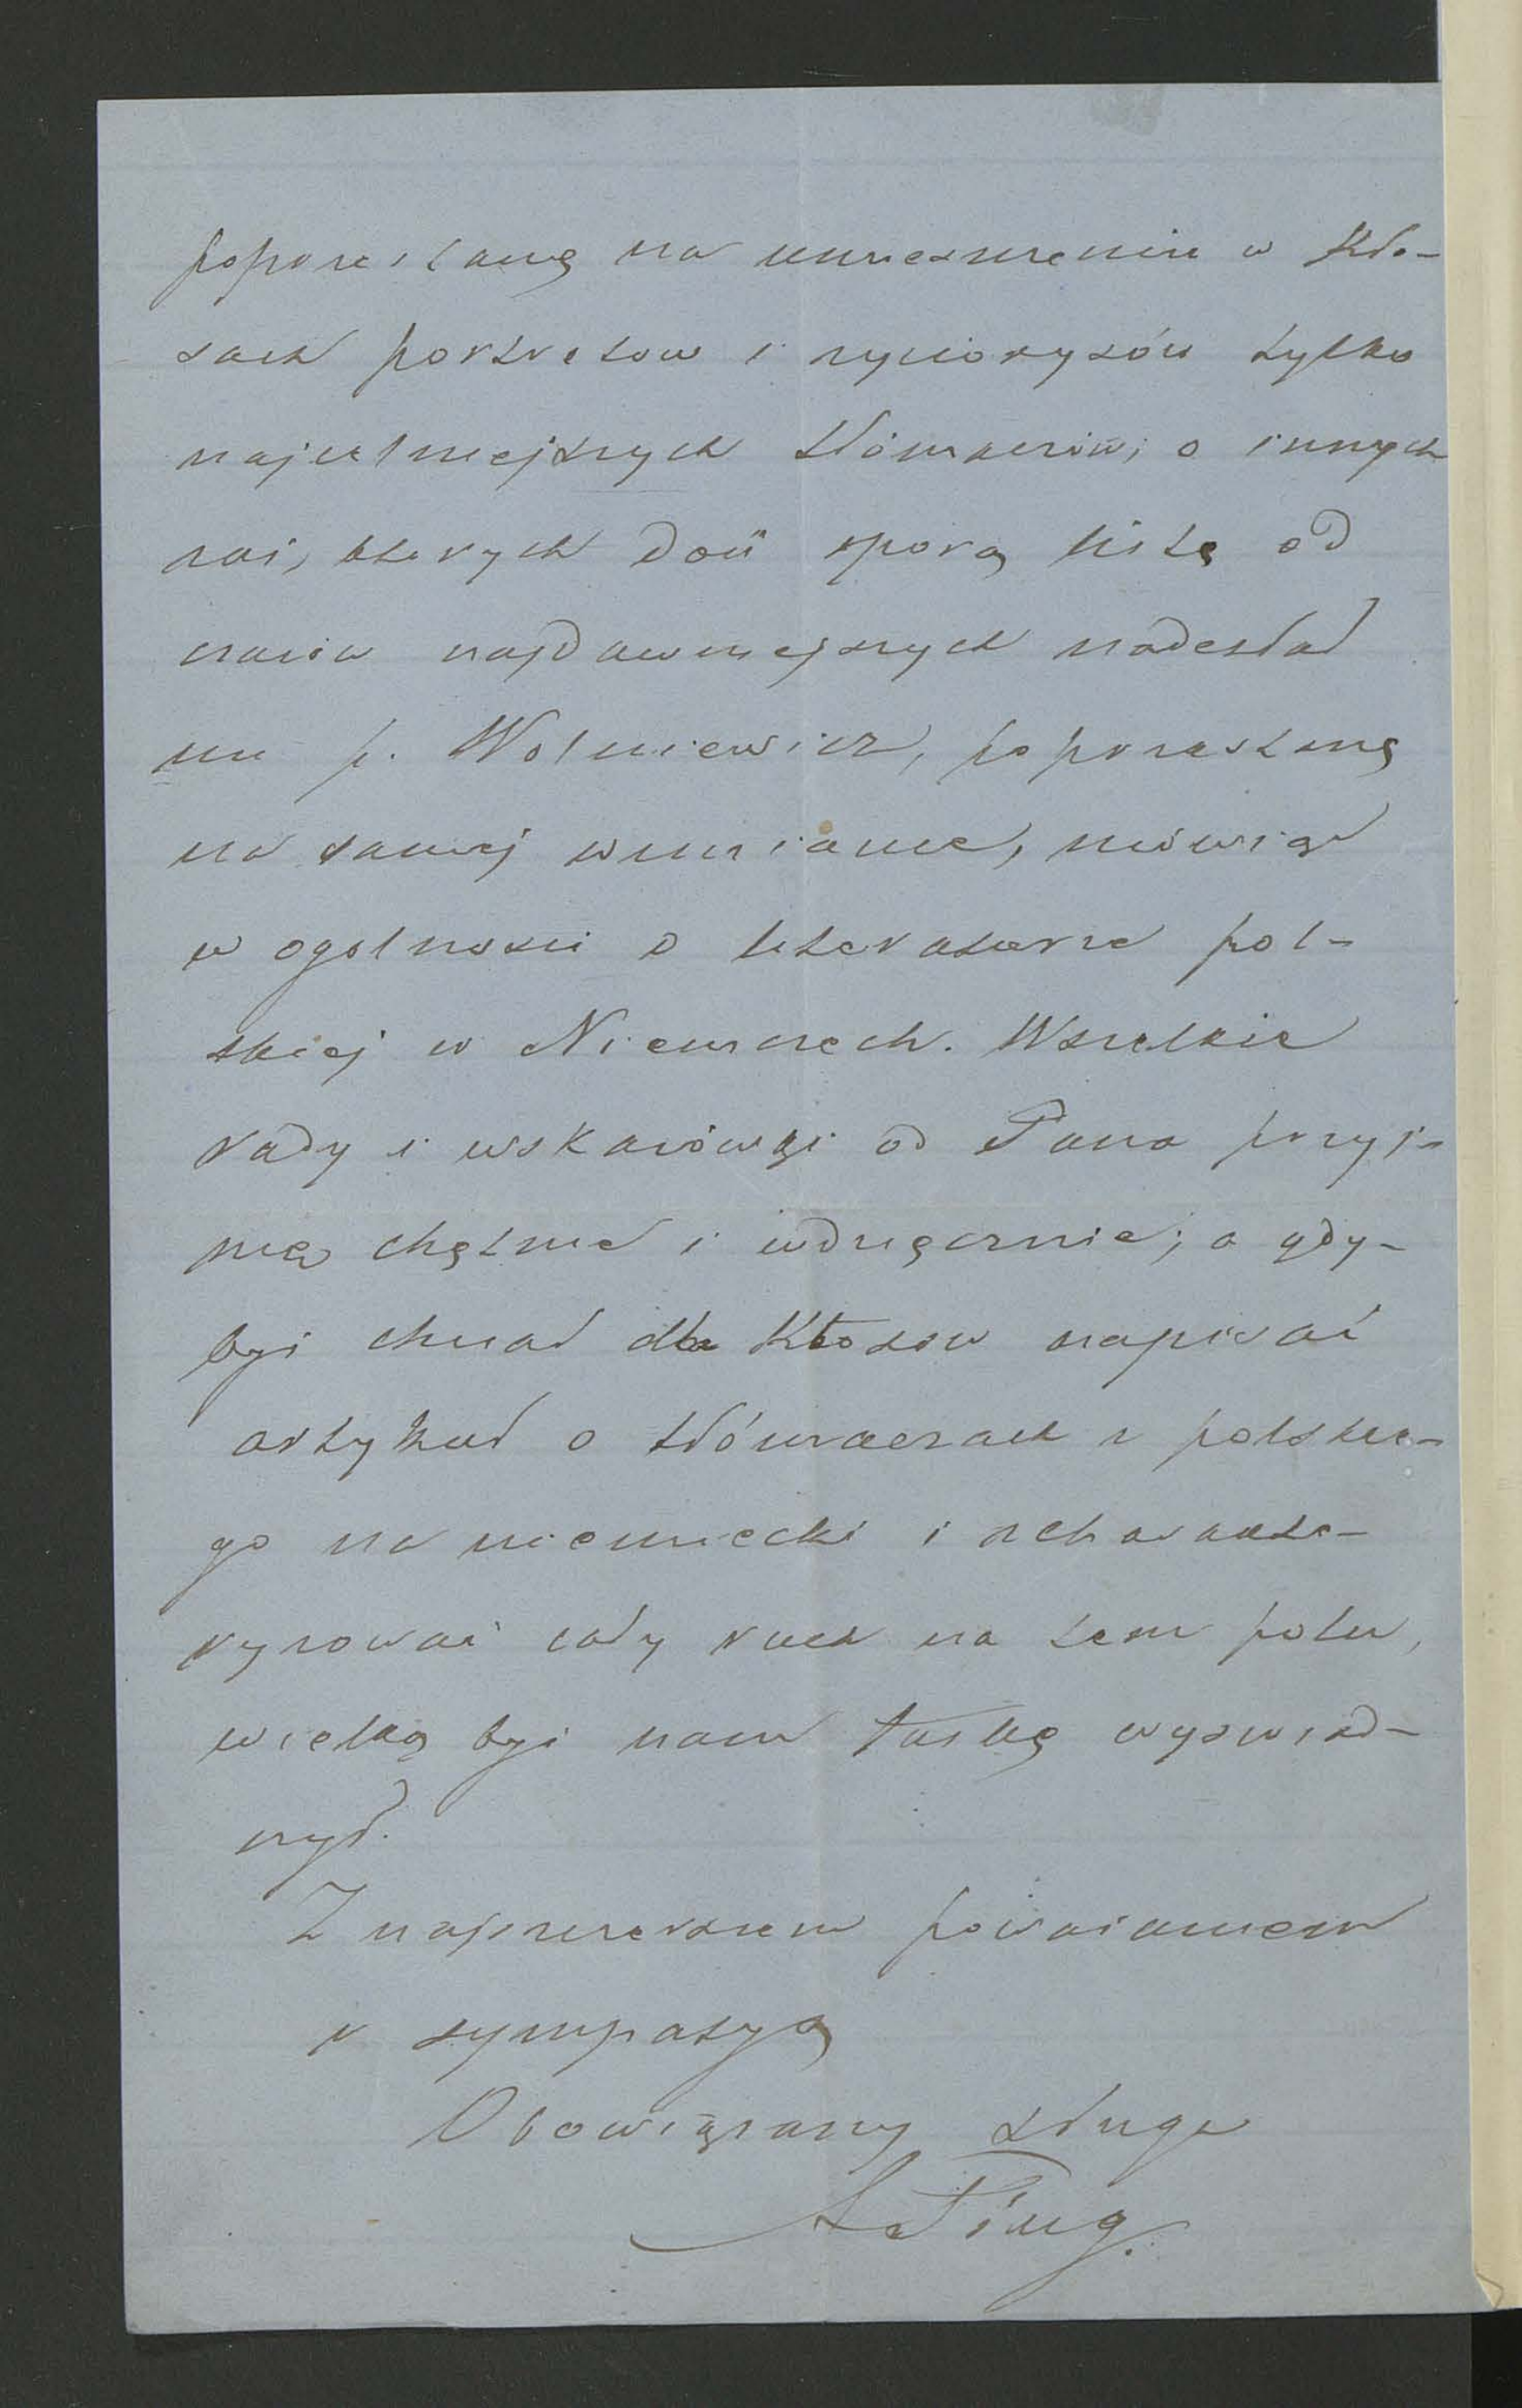 poprzestanę na umieszczeniu w Kło-
sach portretow i życiorysów tylko
najcelniejszych tłómaczów; o innych
zaś, których dość sporą listę od
czasów najdawniejszych nadesłał
mi p. Wolniewicz, poprzestanę
na samej wzmiance, mówiąc
w ogolnosci o literaturze pol-
skiej w Niemczech. Wszelkie
rady i wskazówki od Pana przyj-
mę chętnie i wdzięcznie; a gdy-
byś chciał dla Kłosow napisać
artykuł o tłómaczach z polskie-
go na niemiecki i scharakte-
ryzować cały ruch na tem polu,
wielką byś nam łaskę wyswiad-
czył.
Z najszczerszem poważaniem
i sympatyą
Obowiązany sługa
A Pług.